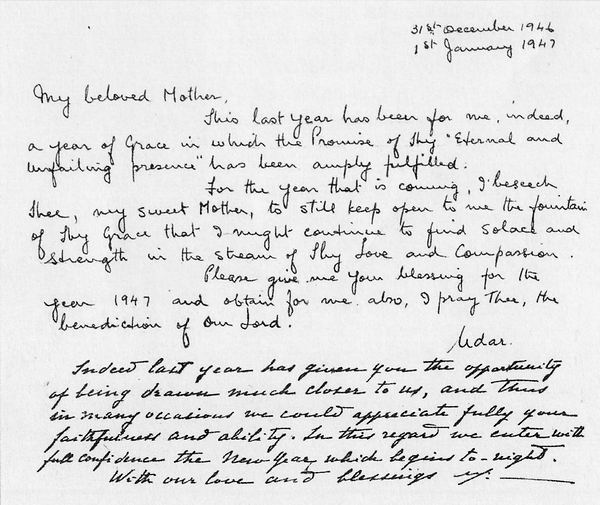 31st December 1946
1st January 1947
My beloved Mother,
This last year has been for me, indeed,
a year of Grace in which the Promise of Thy "Eternal and
unfailing presence" has been amply fulfilled.
For the year that is coming, I beseech
Thee, my sweet Mother, to still keep open to me the fountain
of Thy Grace that I might continue to find solace and
strength in the stream of Thy Love and Compassion.
Please give me Your blessing for the
year 1947 and obtain for me also, I pray Thee, the
benediction of Our Lord.
Udar.
Indeed last year has given you the opportunity
of being drawn much closer to us, and thus
in many occasions we could appreciate fully your
faithfulness and ability. In this regard we enter with
full confidence the New Year which begins to-night.
With our love and blessings